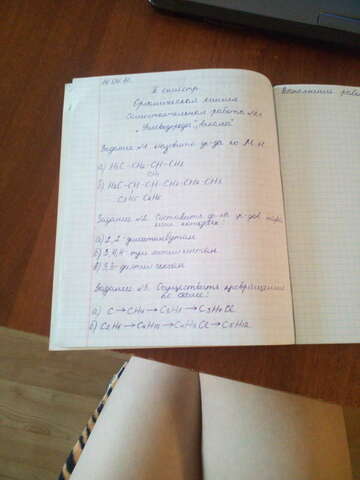 II семестр
Органическая химия
Самостоятельная работа №1
"Углеводороды", алканы"
Задание №1. Назовите ур-да по М.Н.
а) H3C-CH2-CH-CH3
CH3
б) H3C-CH-CH-CH2-CH2-CH3
CH3 C2H5
Задание №2. Составить ф-лы
а) 2,2-диметилбутан
б) 3,4,4-три метил гептан
в) 3,3-диэтил гексан
Задание №3. Осуществить превращения
по схеме:
а) C→CH4→C2H6→
б) C2H6→C4H10→C4H9Cl→
Выполнения рабо